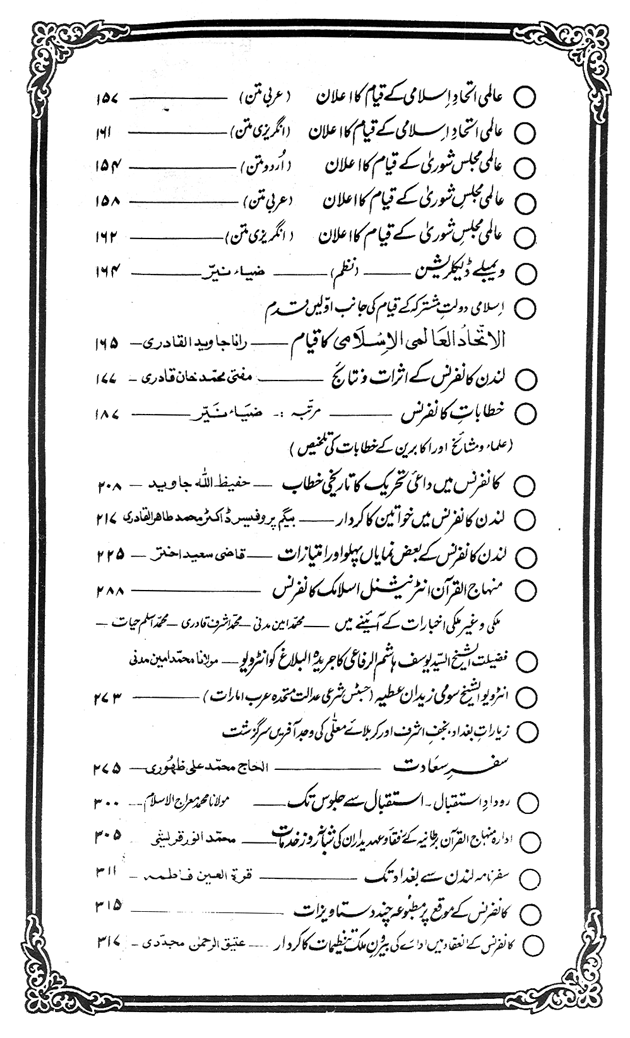 عالمی اتحادِ اسلامی کے قیام کا اعلان (عربی متن) ۱۵۷
عالمی اتحادِ اسلامی کے قیام کا اعلان (انگریزی متن) ۱۶۱
عالمی مجلس شوریٰ کے قیام کا اعلان (اُردو متن) ۱۵۴
عالمی مجلسِ شوریٰ کے قیام کا اعلان (عربی متن) ۱۵۸
عالمی مجلسِ شوریٰ کے قیام کا اعلان (انگریزی متن) ۱۶۲
ویمبلے ڈیکلریشن (نظم) ضیاء نیّر ۱۶۴
اسلامی دولتِ مشترکہ کے قیام کی جانب اوّلیں قدم
الاتحاد العالمی الاسلامی کا قیام رانا جاوید القادری ۱۶۵
لندن کانفرنس کے اثرات و نتائج مفتی محمد خان قادری ۱۷۷
خطاباتِ کانفرنس مرتبہ :- ضیاء نیّر ۱۸۷
(علماء و مشائخ اور اکابرین کے خطابات کی تلخیص)
کانفرنس میں داعئ تحریک کا تاریخی خطاب حفیظ اللہ جاوید ۲۰۸
لندن کانفرنس میں خواتین کا کردار بیگم پروفیسر ڈاکٹر محمد طاہر القادری ۲۱۷
لندن کانفرنس کے بعض نمایاں پہلو اور امتیازات قاضی سعید اختر ۲۲۵
منہاج القرآن انٹرنیشنل اسلامک کانفرنس ۲۸۸
ملکی و غیر ملکی اخبارات کے آئینے میں محمد امین مدنی - محمد اشرف قادری - محمد اسلم حیات
فضیلت الشیخ السید یوسف ہاشم الرفاعی کا جریدہ البلاغ کو انٹرویو مولانا محمد امین مدنی
انٹرویو الشیخ سومی زیدان عطیہ (جسٹس شرعی عدالت متحدہ عرب امارات) ۲۷۳
زیارات بغداد، نجف اشرف اور کربلائے معلّٰی کی وجد آفریں سرگزشت
سفرِ سعادت الحاج محمد علی ظہوری ۲۷۵
رودادِ استقبال - استقبال سے جلوس تک مولانا محمد معراج الاسلام ۳۰۰
ادارہ منہاج القرآن برطانیہ کے رفقاء و عہدیداران کی شبانہ روز خدمات محمد انور قریشی ۳۰۵
سفرنامہ لندن سے بغداد تک قرۃ العین فاطمہ ۳۱۱
کانفرنس کے موقع پر مطبوعہ چند دستاویزات ۳۱۵
کانفرنس کے انعقاد میں ادارے کی بیرون ملک تنظیمات کا کردار عتیق الرحمٰن مجددی ۳۱۷